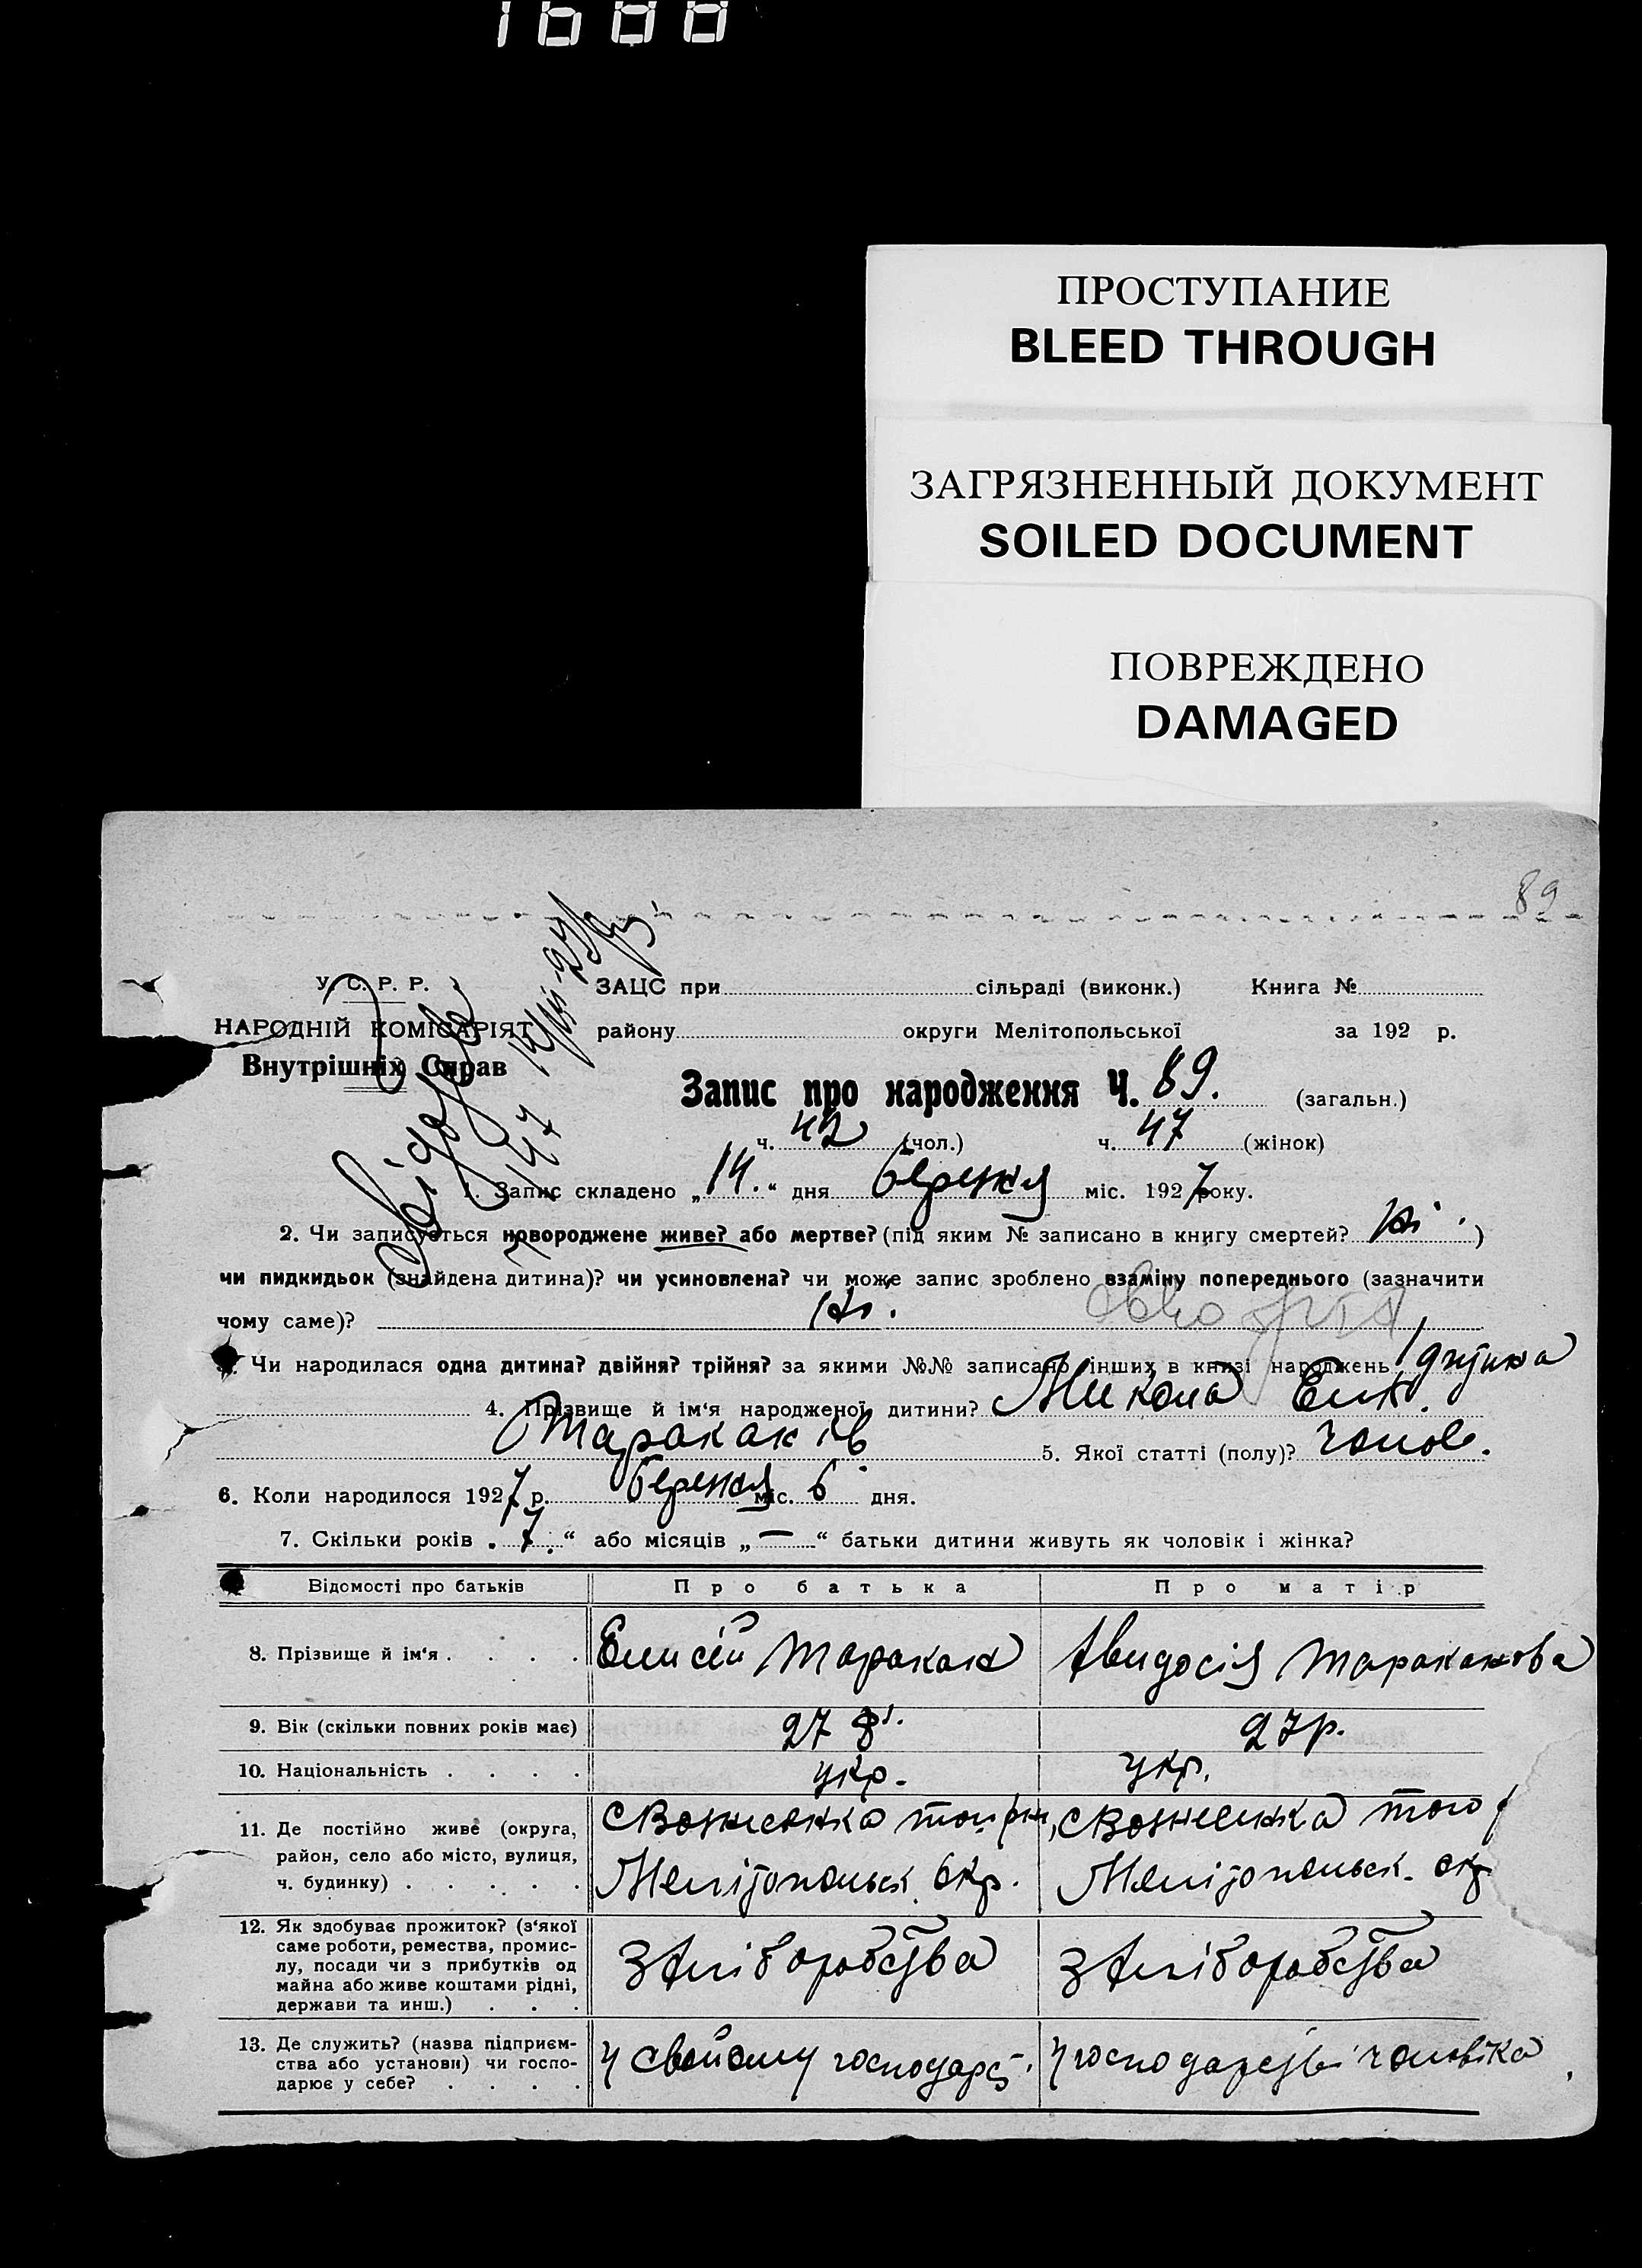 1688
ПРОСТУПАНИЕ
BLEED THROUGH
ЗАГРЯЗНЕННЫЙ ДОКУМЕНТ
SOILED DOCUMENT
ПОВРЕЖДЕНО
DAMAGED
89
У. С. Р. Р.
НАРОДНІЙ КОМІСАРІЯТ
Внутрішніх Справ
ЗАЦС при сільраді (виконк.) Книга №
району округи Мелітопольської за 192 р.
Запис про народження Ч. 89. (загальн.)
ч. 42 (чол.) ч. 47 (жінок)
1. Запис складено „14.“ дня березня міс. 1927 року.
2. Чи записується новороджене живе? або мертве? (під яким № записано в книгу смертей? ні.)
чи пидкидьок (знайдена дитина)? чи усиновлена? чи може запис зроблено взаміну попереднього (зазначити
чому саме)? ні.
3. Чи народилася одна дитина? двійня? трійня? за якими №№ записано інших в книзі народжень 1 дитина
4. Прізвище й ім‘я народженої дитини? Микола Елис.
Тараканів 5. Якої статті (полу)? чолов.
6. Коли народилося 1927 р. березня міс. 6 дня.
7. Скільки років „7.“ або місяців „—“ батьки дитини живуть як чоловік і жінка?
Відомості про батьків Про батька Про матір
8. Прізвище й ім‘я . . . . Елисей Таракан Авидосія Тараканова
9. Вік (скільки повних років має) 27 р. 27 р.
10. Національність . . . . укр. укр.
11. Де постійно живе (округа, район, село або місто, вулиця, ч. будинку) . . . . .
с Вознесенка того рн, с Вознесенка того р
Мелітопольськ. окр. Мелітопольськ. окр
12. Як здобуває прожиток? (з‘якої
саме роботи, ремества, промис-
лу, посади чи з прибутків од
майна або живе коштами рідні,
держави та инш.) . . .
з Хліборобства з Хліборобства
13. Де служить? (назва підприєм-
ства або установи) чи госпо-
дарює у себе? . . . .
у свойому господарс. у господарстві чоловіка